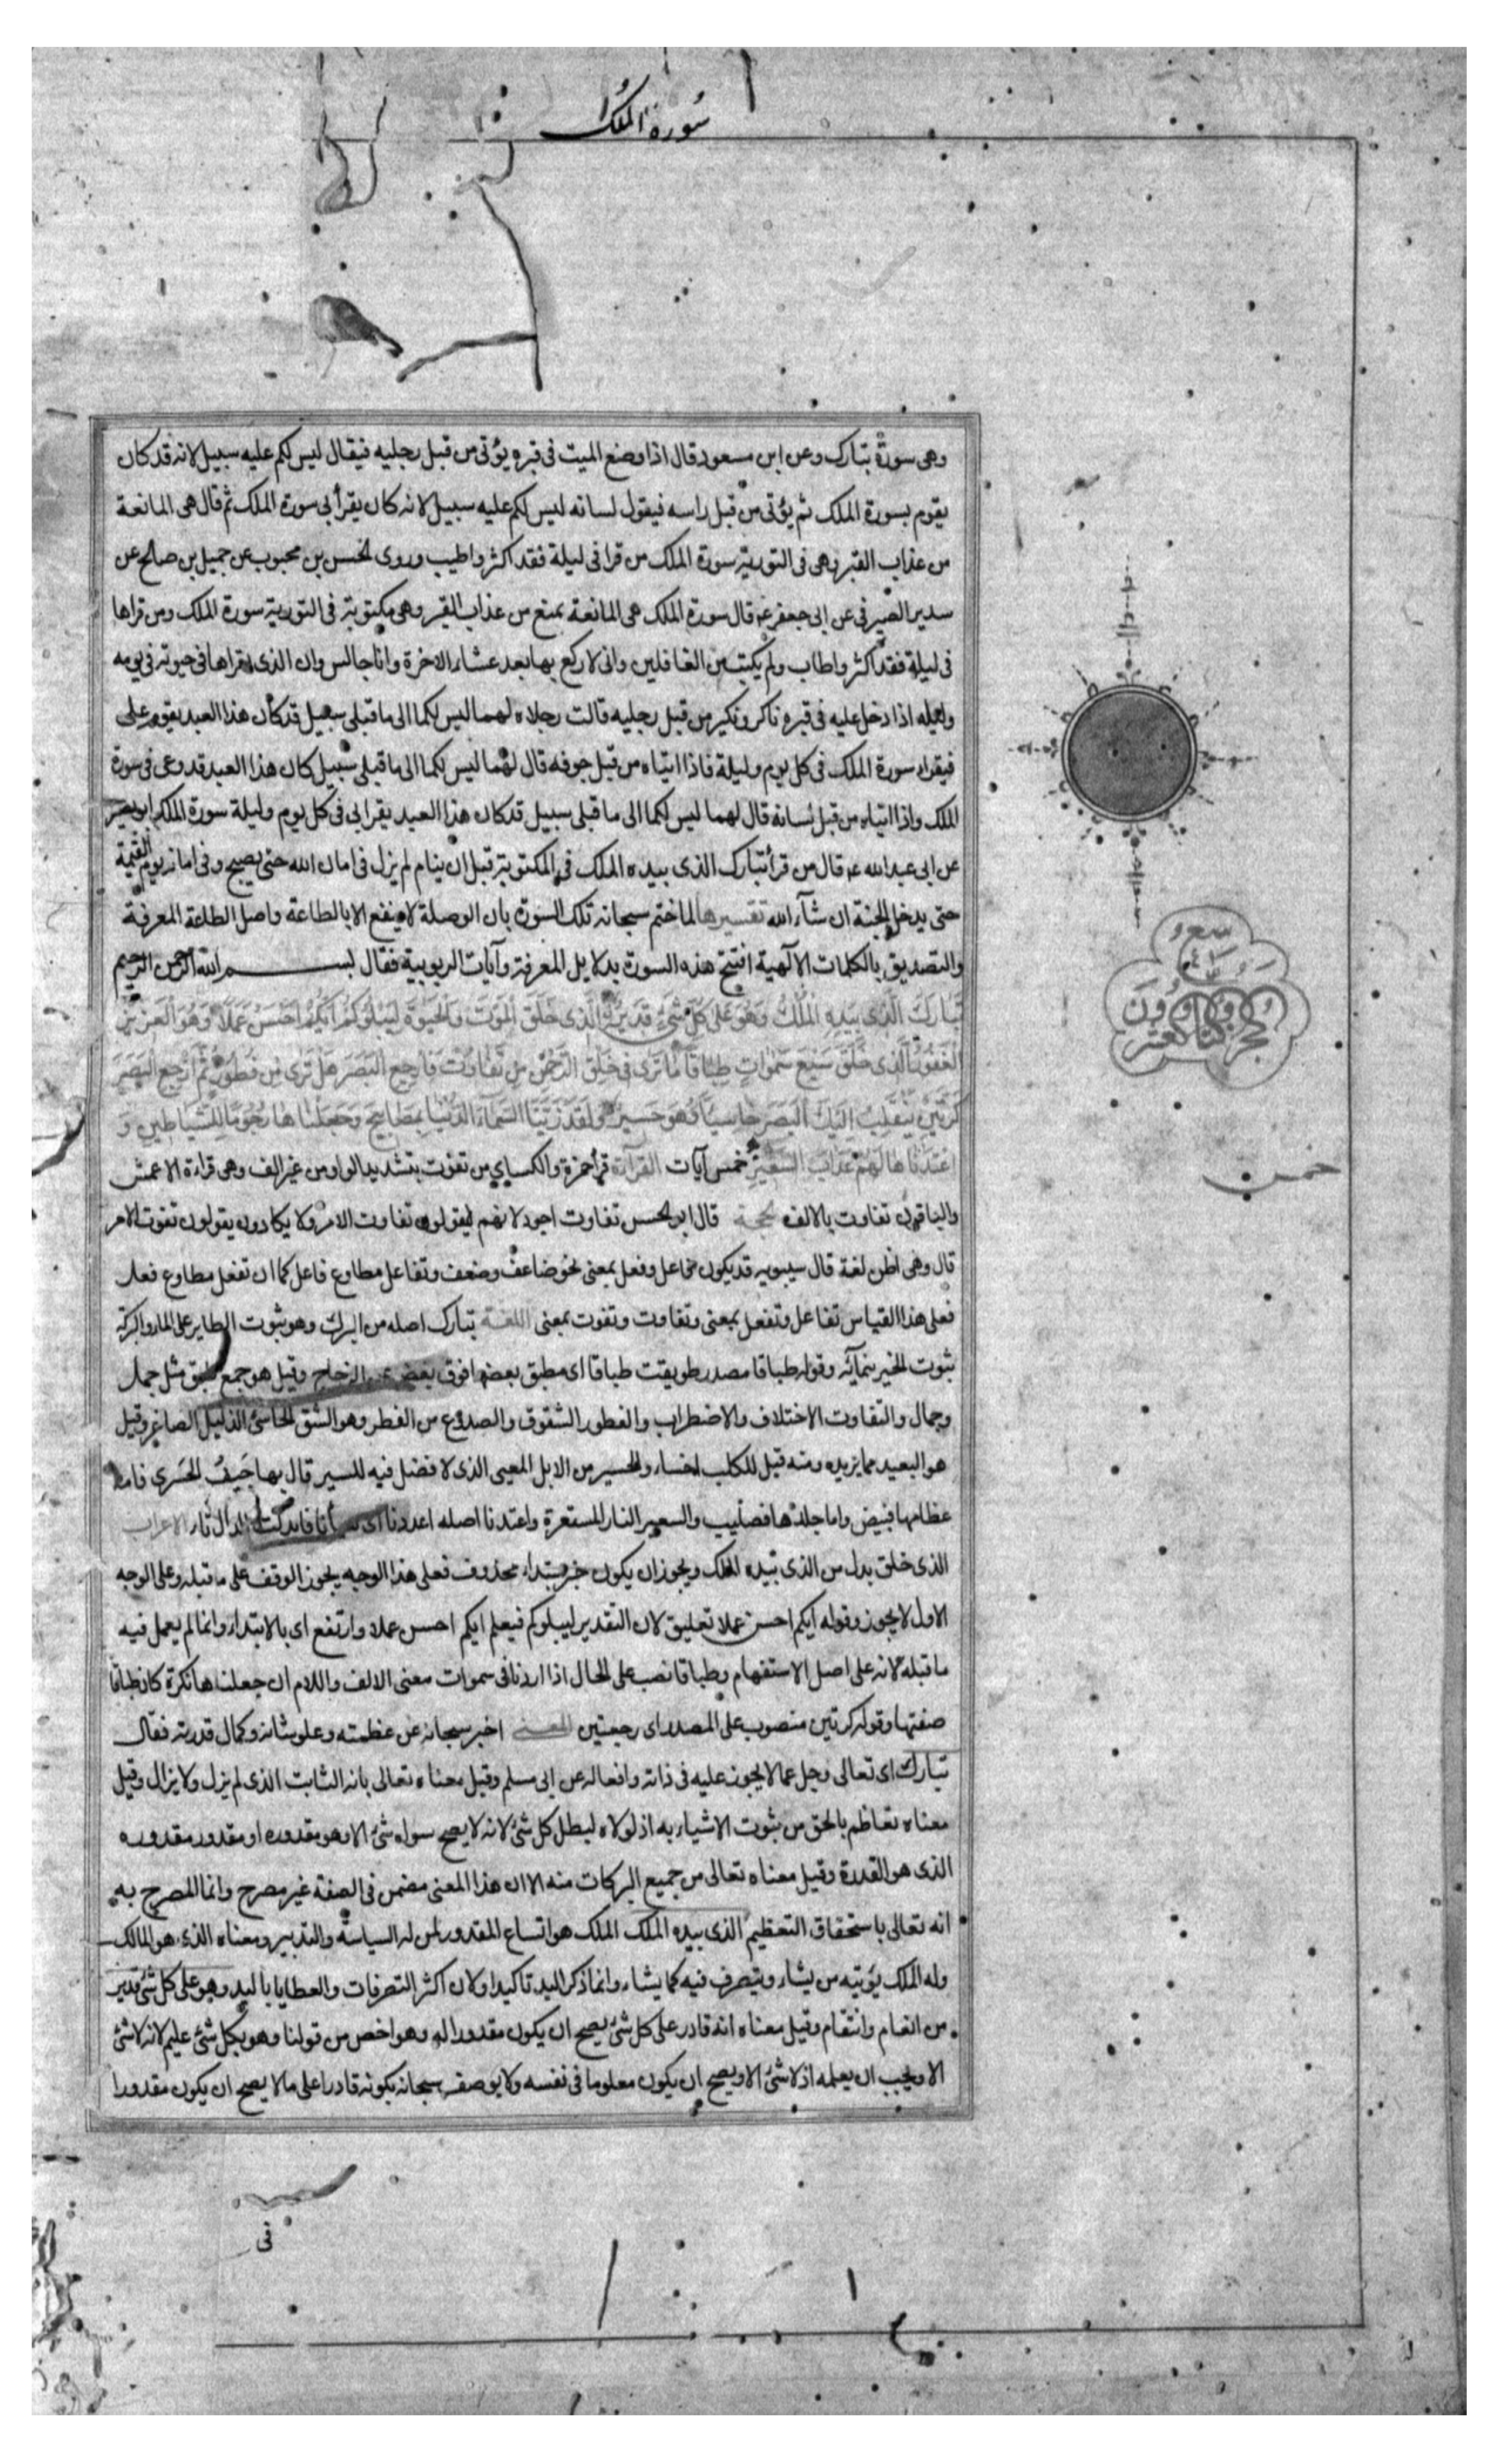 سورة الملك
وهى سورة تبارك وعن ابن مسعود قال اذا وضع الميت فى قبره يؤتى من قبل رجليه فيقال ليس لكم عليه سبيل لانه قد كان
يقوم بسورة الملك ثم يؤتى من قبل راسه فيقول لسانه ليس لكم عليه سبيل لانه كان يقرأ بى سورة الملك ثم قال هى المانعة
من عذاب القبر وهى فى التورية سورة الملك من قرا فى ليلة فقد اكثر واطيب وروى الحسن بن محبوب عن جميل بن صالح عن
سدير الصيرفى عن ابى جعفر ع قال سورة الملك هى المانعة تمنع من عذاب القبر وهى مكتوبة فى التورية سورة الملك ومن قراها
فى ليلة فقد اكثر واطاب ولم يكتب من الغافلين وانى لاركع بها بعد عشاء الاخرة وانا جالس وان الذى قراها فى حيوته فى يومه
وليله اذا دخل عليه فى قبره ناكر ونكير من قبل رجليه قالت رجلاه لهما ليس لكما الى ما قبلى سبيل قد كان هذا العبد يقوم على
فيقراء سورة الملك فى كل يوم وليلة فاذا اتياه من قبل جوفه قال لهما ليس لكما الى ما قبلى سبيل كان هذا العبد قد وعى فى سورة
الملك واذا اتياه من قبل لسانه قال لهما ليس لكما الى ما قبلى سبيل قد كان هذا العبد يقرا بى فى كل يوم وليلة سورة الملك ابو بصير
عن ابى عبد الله ع قال من قرأ تبارك الذى بيده الملك فى المكتوبة قبل ان ينام لم يزل فى امان الله حتى يصبح وفى امانه يوم القيمة
حتى يدخل الجنة ان شآء الله تفسيرها لما ختم سبحانه تلك السورة بان الوصلة لا ينفع الا بالطاعة واصل الطاعة المعرفة
والتصديق بالكلمات الآلهية افتتح هذه السورة بدلايل المعرفة وآيات الربوبية فقال بسم الله الرحمن الرحيم
تَبَارَكَ الَّذى بِيَدِهِ الْمُلْكُ وَهُوَ عَلى كُلِّ شَىْءٍ قَديرٌ الَّذى خَلَقَ الْمَوْتَ وَالْحَيوةَ لِيَبْلُوَكُمْ اَيُّكُمْ اَحْسَنُ عَمَلًا وَهُوَ الْعَزيزُ
الْغَفُورُ الَّذى خَلَقَ سَبْعَ سَمواتٍ طِبَاقًا مَا تَرى فى خَلْقِ الرَّحْمنِ مِنْ تَفَاوُتٍ فَارْجِعِ الْبَصَرَ هَلْ تَرى مِنْ فُطُورٍ ثُمَّ ارْجِعِ الْبَصَرَ
كَرَّتَيْنِ يَنْقَلِبْ اِلَيْكَ الْبَصَرُ خَاسِئًا وَهُوَ حَسيرٌ وَلَقَدْ زَيَّنَّا السَّمَاءَ الدُّنْيَا بِمَصَابيحَ وَجَعَلْنَاهَا رُجُومًا لِلشَّيَاطينِ وَ
اَعْتَدْنَا لَهُمْ عَذَابَ السَّعيرِ خمس آيات القرآءة قرأ حمزة والكسايى من تفوت بتشديد الواو من غير الف وهى قراءة الاعمش
والباقون تفاوت بالالف الحجة قال ابو الحسن تفاوت اجود لانهم يقولون تفاوت الامر ولا يكادون يقولون تفوت الامر
قال وهى اظن لغة قال سيبويه قد يكون فاعل وفعل بمعنى نحو ضاعف وضعف وتفاعل مطاوع فاعل كما ان تفعل مطاوع فعل
فعلى هذا القياس تفاعل وتفعل بمعنى وتفاوت وتفوت بمعنى اللغة تبارك اصله من البرك وهو ثبوت الطاير على الماء والبركة
ثبوت الخير بنمآئه وقوله طباقا مصدر طوبقت طباقا اى مطبق بعضها فوق بعض عن الزجاج وقيل هو جمع طبق مثل جمل
وجمال والتفاوت الاختلاف والاضطراب والفطور الشقوق والصدوع من الفطر وهو الشق الخاسئ الذليل الصاغر وقيل
هو البعيد مما يريده ومنه قيل للكلب اخسا والحسير من الابل المعيى الذى لا فضل فيه للسير قال بها جَيفُ الحَسرى فاما
عظامها فبيض واما جلدها فصليب والسعير النار المستعرة واعتدنا اصله اعددنا اى فابدلت الدال تاء الاعراب
الذى خلق بدل من الذى بيده الملك ويجوز ان يكون خبر مبتداء محذوف فعلى هذا الوجه يجوز الوقف على ما قبله وعلى الوجه
الاول لا يجوز وقوله ايكم احسن عملا تعليق لان التقدير ليبلوكم فيعلم ايكم احسن عملا وارتفع اى بالابتداء وانما لم يعمل فيه
ما قبله لانه على اصل الاستفهام وطباقا نصب على الحال اذا اردنا فى سموات معنى الالف واللام ان جعلناها نكرة كان طباقا
صفتها وقوله كرتين منصوب على المصدر اى رجعتين المعنى اخبر سبحانه عن عظمته وعلو شانه وكمال قدرته فقال
تبارك اى تعالى وجل عما لا يجوز عليه فى ذاته وافعاله عن ابى مسلم وقيل معناه تعالى بانه الثابت الذى لم يزل ولا يزال وقيل
معناه تعاظم بالحق من ثبوت الاشياء به اذ لولاه لبطل كل شئ لانه لا يصح سواه شئ الا وهو مقدوره او مقدور مقدوره
الذى هو القدرة وقيل معناه تعالى من جميع البركات منه الا ان هذا المعنى مضمن فى الصفة غير مصرح وانما المصرح به
انه تعالى باستحقاق التعظيم الذى بيده الملك الملك هو اتساع المقدور لمن له السياسة والتدبير ومعناه الذى هو المالك
وله الملك يؤتيه من يشاء ويتصرف فيه كما يشاء وانما ذكر اليد تاكيدا ولان اكثر التصرفات والعطايا باليد وهو على كل شئ قدير
من انعام وانتقام وقيل معناه انه قادر على كل شئ يصح ان يكون مقدورا له وهو اخص من قولنا وهو بكل شئ عليم لانه لا شئ
الا ويجب ان يعلمه اذ لا شئ الا ويصح ان يكون معلوما فى نفسه ولا يوصف سبحانه بكونه قادرا على ما لا يصح ان يكون مقدورا
خمس
فى